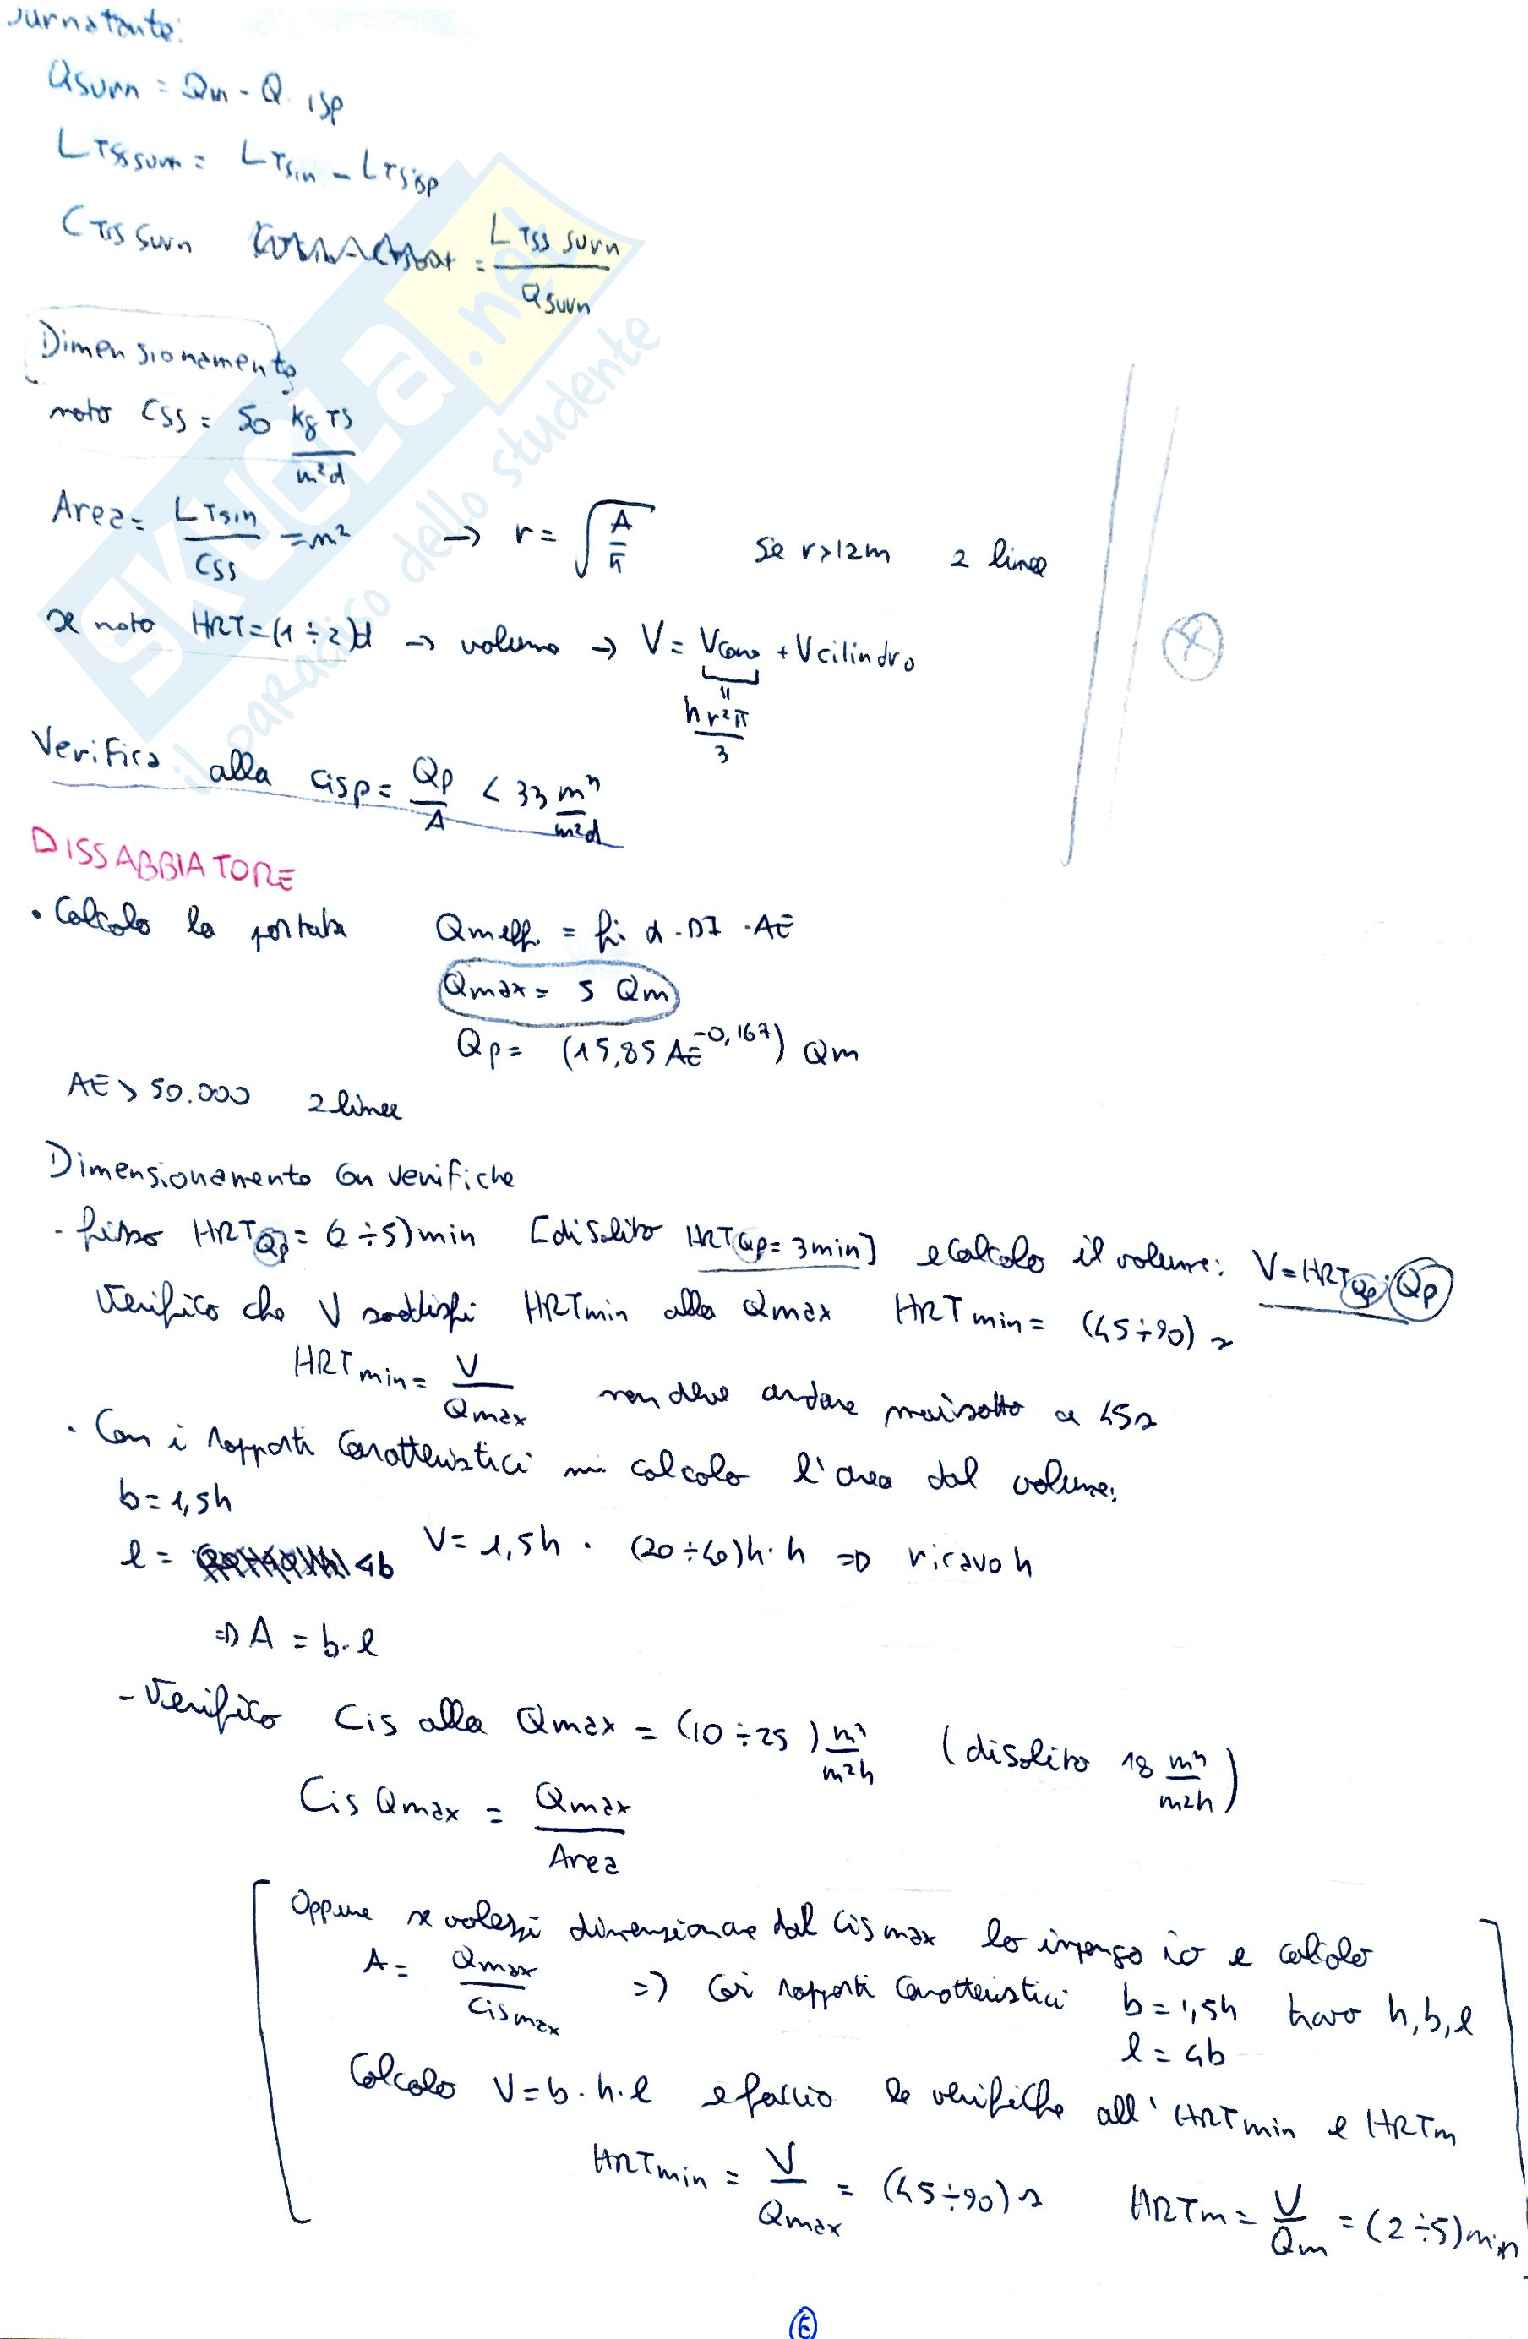 surnatante:
Qsurn = Qin - Q isp
LTSSsurn = LTSin - LTSisp
CTSS surn = LTSS surn / Qsurn
Dimensionamento
noto CSS = 50 kg TS / m²d
Area = LTSin / CSS = m² → r = √A/π se r>12m 2 linee
se noto HRT = (1÷2)d → volume → V = Vcono + Vcilindro
hr²π / 3
Verifica alla Cisp = Qp / A < 33 m³ / m²d
DISSABBIATORE
• Calcolo la portata Qmeff. = fi. d. DI . AE
Qmax = 5 Qm
Qp = (15,85 AE^-0,167) Qm
AE > 50.000 2 linee
Dimensionamento con verifiche
- fisso HRTQp = (2÷5)min [di solito HRTQp = 3min] e calcolo il volume: V = HRTQp . Qp
Verifico che V soddisfi HRTmin alla Qmax HRTmin = (45÷90) s
HRTmin = V / Qmax non deve andare mai sotto a 45s
• Con i rapporti caratteristici mi calcolo l'area dal volume:
b = 1,5h
l = 4b V = 1,5h . (20÷40)h . h => ricavo h
=> A = b . l
- Verifico Cis alla Qmax = (10÷25) m³ / m²h (di solito 18 m³ / m²h)
Cis Qmax = Qmax / Area
Oppure se volessi dimensionare dal Cis max lo impongo io e calcolo
A = Qmax / Cismax => Coi rapporti caratteristici b = 1,5h trovo h, b, l
l = 4b
Calcolo V = b . h . l e faccio le verifiche all' HRTmin e HRTm
HRTmin = V / Qmax = (45÷90) s HRTm = V / Qm = (2÷5) min
E
SKUOLA.net
il paradiso dello studente